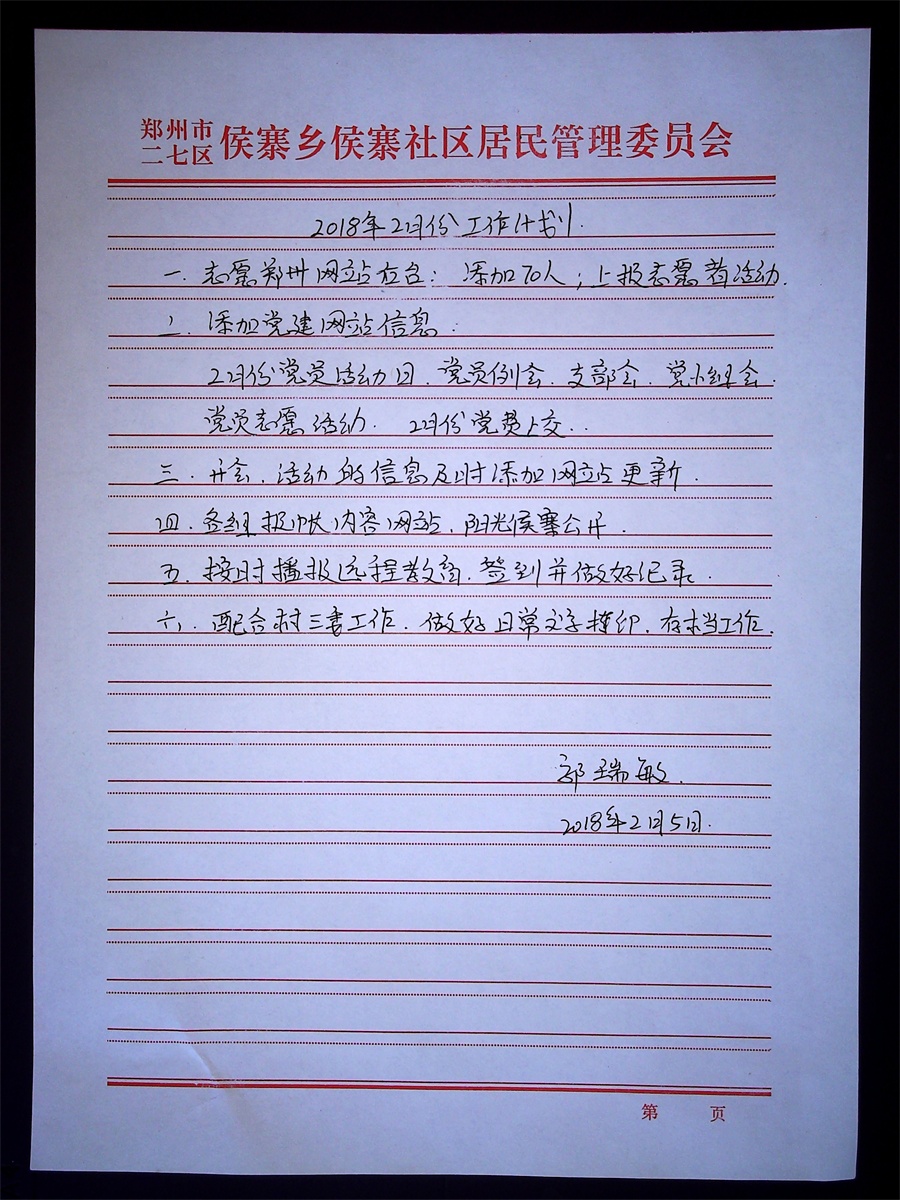 郑州市
二七区 侯寨乡侯寨社区居民管理委员会
2018年2月份工作计划.
一. 志愿郑州网站在名: 添加70人; 上报志愿者活动.
二. 添加党建网站信息:
2月份党员活动日. 党员例会. 支部会. 党小组会.
党员志愿活动. 2月份党费上交..
三. 开会. 活动的信息及时添加网站更新.
四. 各组报帐内容网站. 阳光侯寨公开.
五. 按时播报远程教育. 签到并做好记录.
六. 配合村三委工作. 做好日常文字 印. 存档工作.
郭瑞敏.
2018年2月5日.
第 页